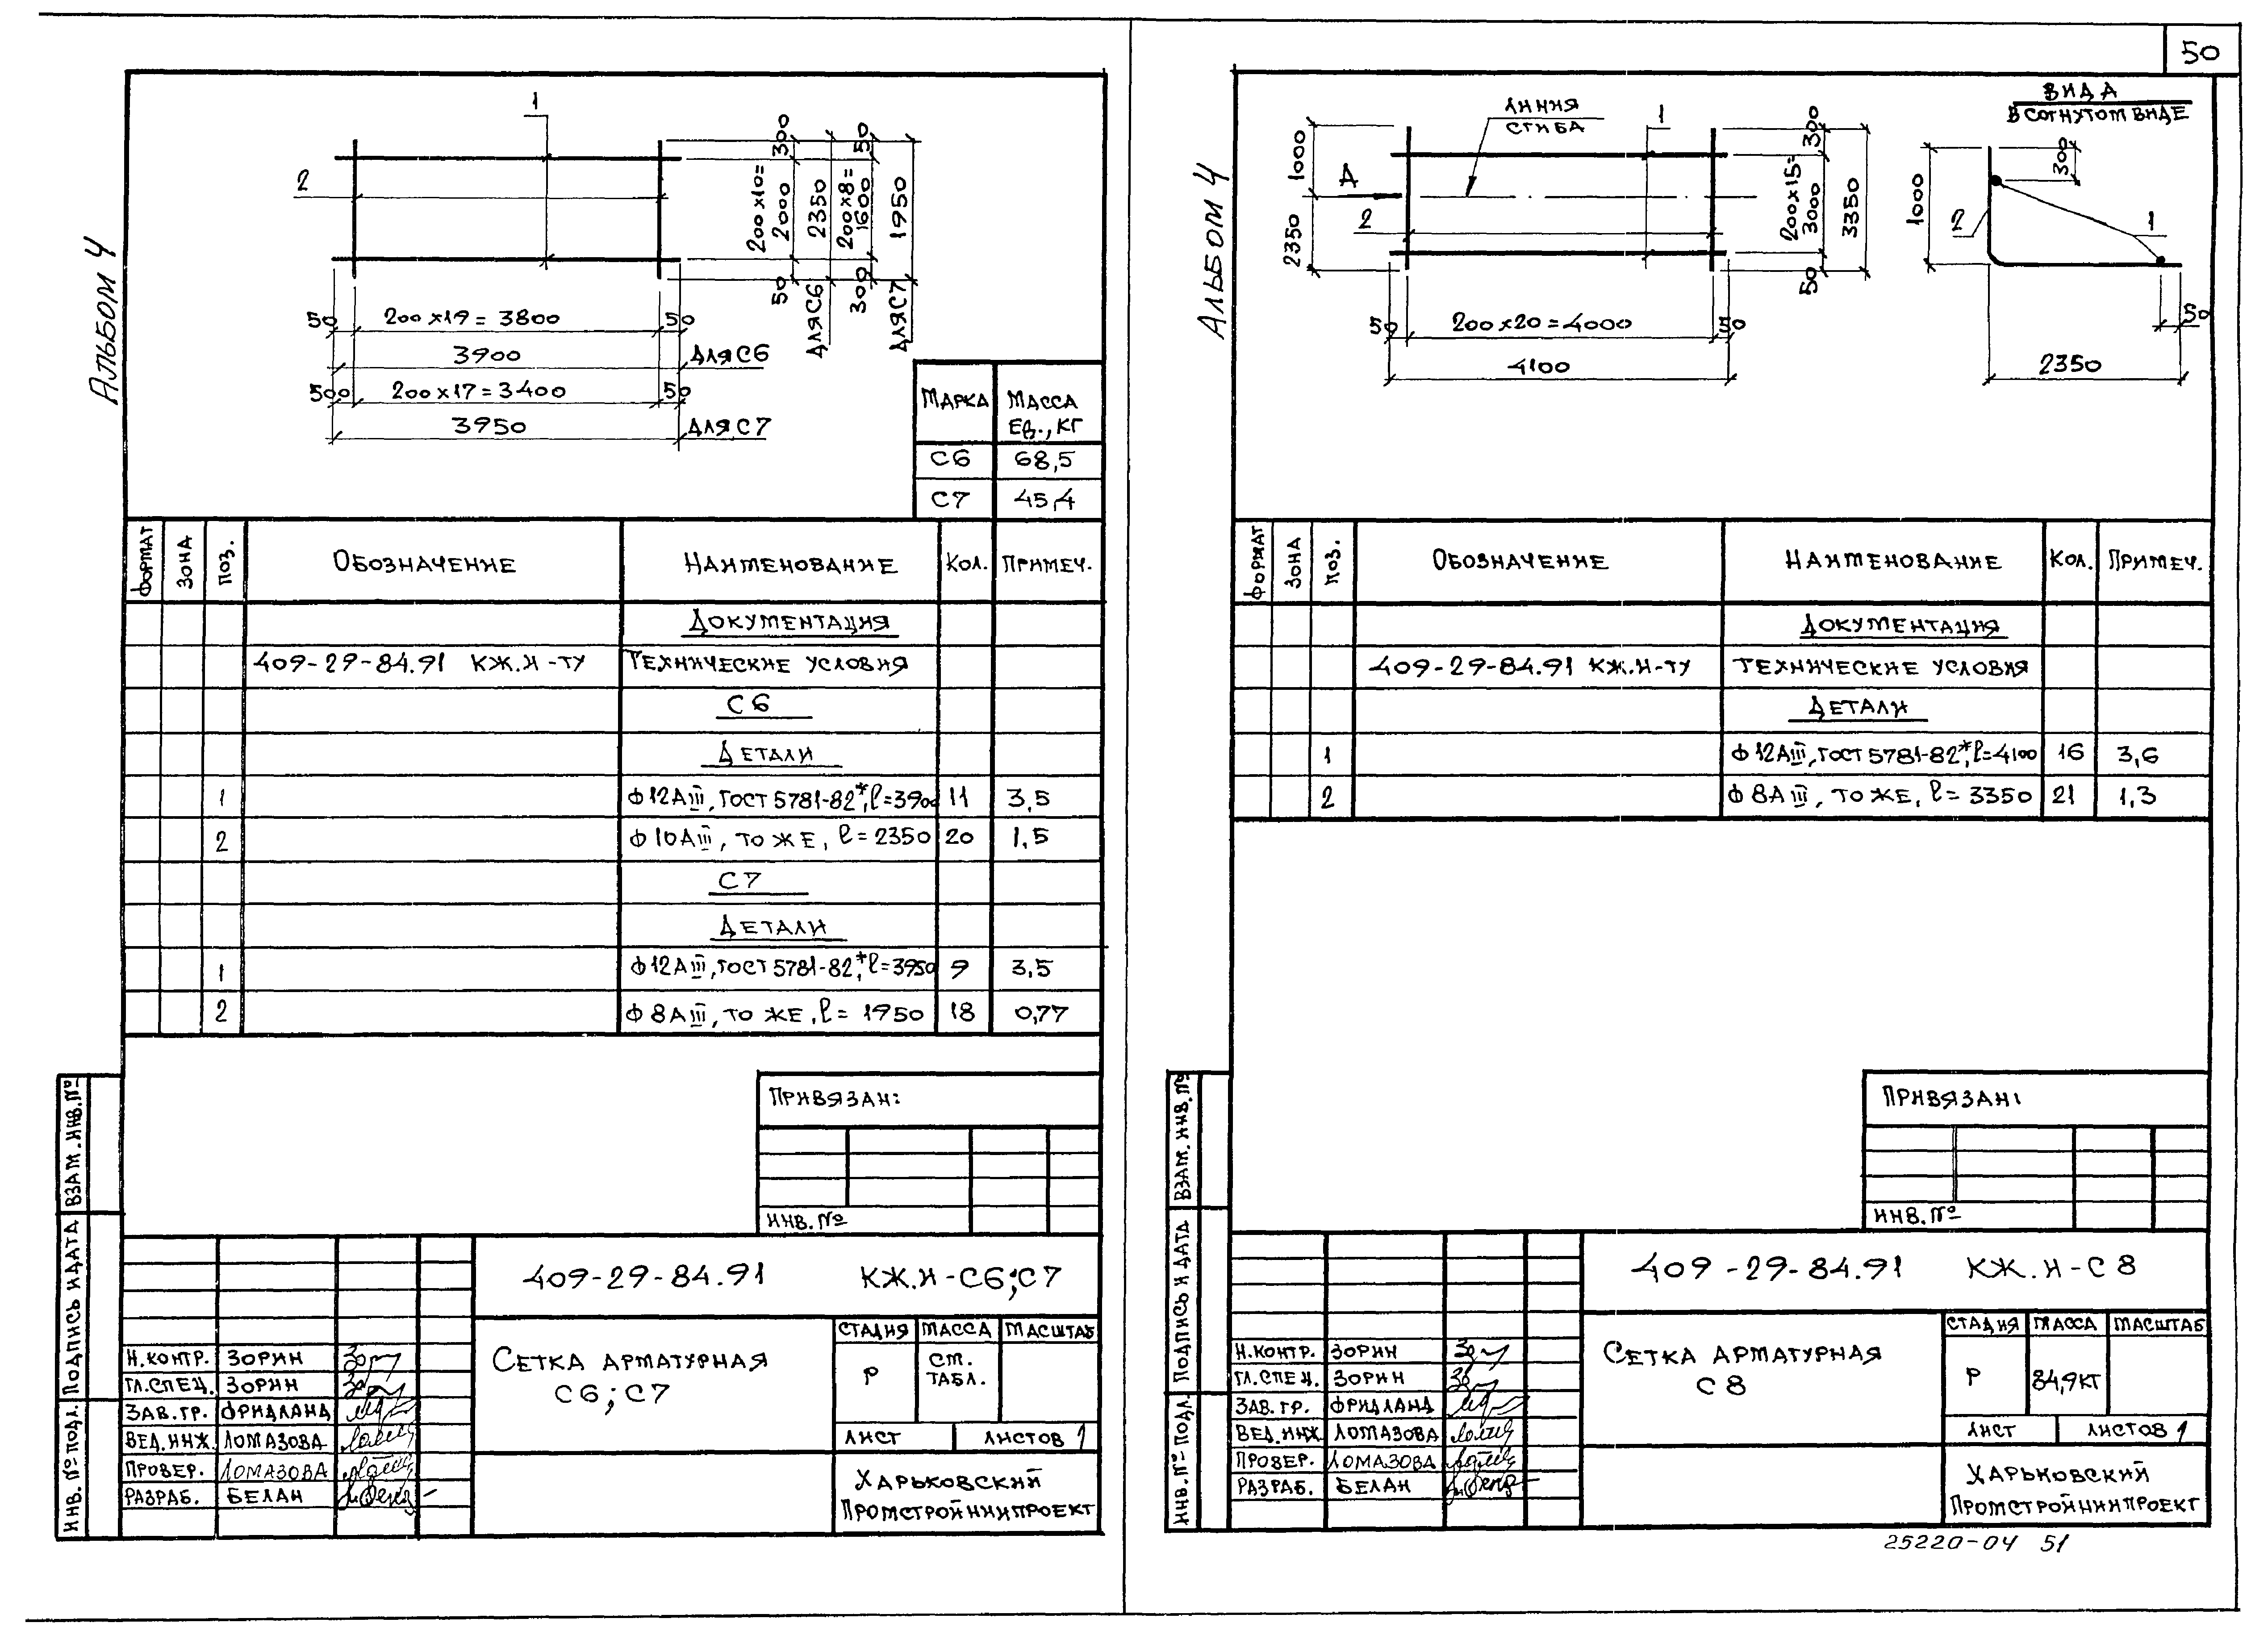 50
Альбом 4
1
2
50
200×19=3800
50
3900
Для С6
500
200×17=3400
50
3950
Для С7
300
200×10=
2000
50
2350
Для С6
50
200×8=
1600
300
1950
Для С7
Марка
Масса
ед., кг
С6
68,5
С7
45,4
Формат
Зона
Поз.
Обозначение
Наименование
Кол.
Примеч.
Документация
409-29-84.91 КЖ.И-ТУ
Технические условия
С6
Детали
1
Ф12АIII, ГОСТ 5781-82*, l=3900
11
3,5
2
Ф10АIII, то же, l=2350
20
1,5
С7
Детали
1
Ф12АIII, ГОСТ 5781-82*, l=3950
9
3,5
2
Ф8АIII, то же, l=1950
18
0,77
Привязан:
Инв.№
409-29-84.91 КЖ.И-С6;С7
Сетка арматурная
С6; С7
Стадия
Масса
Масштаб
Р
См.
табл.
Лист
Листов 1
Харьковский
Промстройниипроект
Н.контр. Зорин
Гл.спец. Зорин
Зав.гр. Фридланд
Вед.инж. Ломазова
Провер. Ломазова
Разраб. Белан
Инв.№подл.
Подпись и дата
Взам.инв.№
Альбом 4
Линия
сгиба
1
А
2
1000
2350
300
200×15=
3000
50
3350
50
200×20=4000
50
4100
Вид А
в согнутом виде
1000
300
2
1
50
2350
Формат
Зона
Поз.
Обозначение
Наименование
Кол.
Примеч.
Документация
409-29-84.91 КЖ.И-ТУ
Технические условия
Детали
1
Ф12АIII, ГОСТ 5781-82*, l=4100
16
3,6
2
Ф8АIII, то же, l=3350
21
1,3
Привязан:
Инв.№
409-29-84.91 КЖ.И-С8
Сетка арматурная
С8
Стадия
Масса
Масштаб
Р
84,9кг
Лист
Листов 1
Харьковский
Промстройниипроект
Н.контр. Зорин
Гл.спец. Зорин
Зав.гр. Фридланд
Вед.инж. Ломазова
Провер. Ломазова
Разраб. Белан
Инв.№подл.
Подпись и дата
Взам.инв.№
25220-04 51